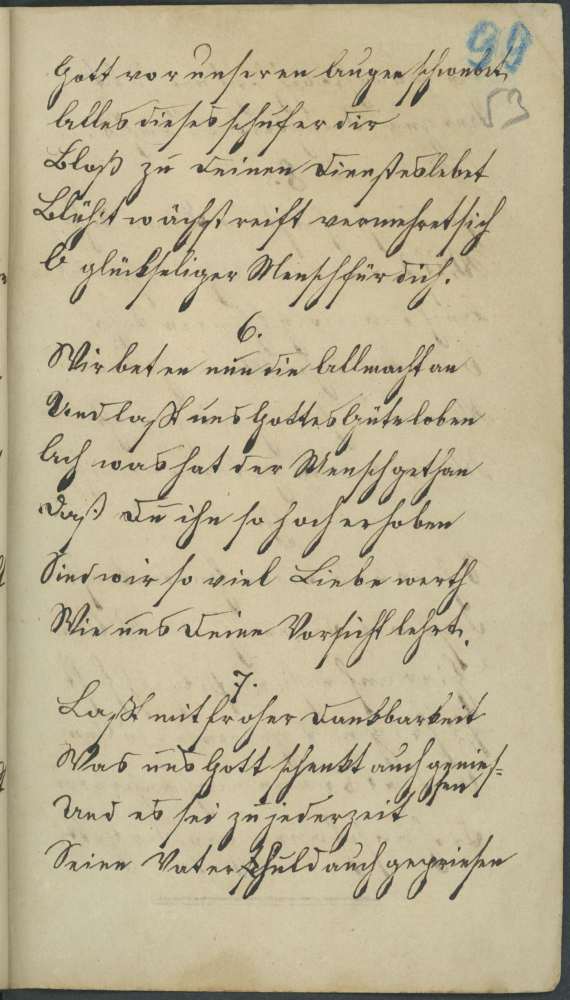 90
53
Gott vor unseren Augen schwebet,
Alles dieses schuf er dir
Bloß zu deinen Diensten lebet
Blüh't wächst reift vermehret sich
O glückseliger Mensch für dich.
6.
Wir beten nun die Allmacht an
Und laßt uns Gottes Güte loben
Ach was hat der Mensch gethan
Daß Du ihn so hoch erhoben
Sind wir so viel Liebe werth
Wie uns Deine Vorsicht lehrt.
7.
Laßt mit froher Dankbarkeit
Was uns Gott schenkt auch genies-
sen
Und es sei zu jederzeit
Seine Vater Huld auch gepriesen